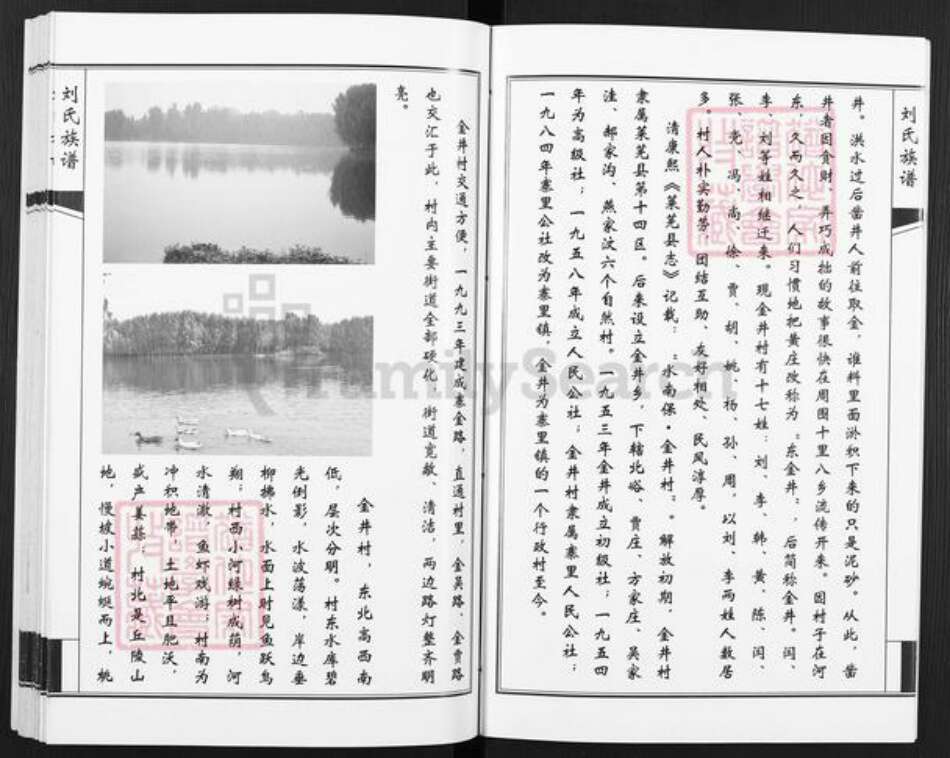 刘氏族谱
井。洪水过后凿井人前往取金，谁料里面淤积下来的只是泥砂。从此，凿
井者因贪财、弄巧成拙的故事很快在周围十里八乡流传开来。因村子在河
东，久而久之，人们习惯地把黄庄改称为“东金井”，后简称金井。闫、
李、刘等姓相继迁来。现金井村有十七姓：刘、李、韩、黄、陈、闫、
张、党、冯、尚、徐、贾、胡、姚、杨、孙、周，以刘、李两姓人数居
多。村人朴实勤劳，团结互助、友好相处、民风淳厚。
清康熙《莱芜县志》记载：“水南保·金井村”。解放初期，金井村
隶属莱芜县第十四区。后来设立金井乡，下辖北峪、贾庄、方家庄、吴家
洼、郝家沟、燕家汶六个自然村。一九五三年金井成立初级社；一九五四
年为高级社；一九五八年成立人民公社；金井村隶属寨里人民公社；
一九八四年寨里公社改为寨里镇，金井为寨里镇的一个行政村至今。
刘氏族谱
金井村交通方便，一九九三年建成寨金路，直通村里，金吴路、金贾路
也交汇于此，村内主要街道全部硬化，街道宽敞、清洁，两边路灯整齐明
亮。
金井村，东北高西南
低，层次分明。村东水库碧
光倒影，水波荡漾，岸边垂
柳拂水，水面上时见鱼跃鸟
翔；村西小河绿树成荫，河
水清澈，鱼虾戏游；村南为
冲积地带，土地平且肥沃，
盛产姜蒜；村北是丘陵山
地，慢坡小道蜿蜒而上，桃
FamilySearch